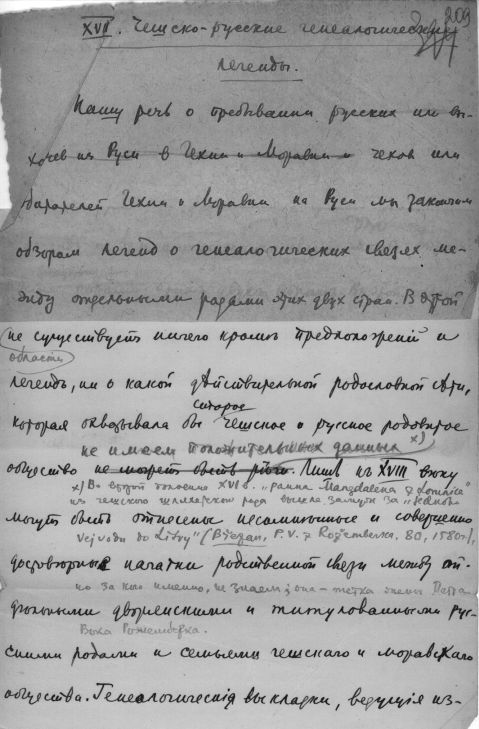 209
XVII. Чешско-русские генеалогические
легенды.
Нашу речь о пребывании русских или вы-
ходцев из Руси в Чехии и Моравии и чехов или
обитателей Чехии и Моравии на Руси мы закончим
обзором легенд о генеалогических связях ме-
жду отдельными родами этих двух стран. В этой
не существует ничего кроме предположений и
области
легенд, ни о какой действительной родословной сети,
старое
которая связывала бы чешское и русское родовитое
не имеем положительных данных х)
общество не может быть речи. Лишь к XVIII веку
х) Во второй половине XVI в. "panna Mangdalena z Lomnice"
из чешского шляхетского рода вышла замуж за
могут быть отнесены несомненные и совершенно
Vejvodu do Litvy" (Březan, P. V. z Rožemberka. 80, 1580 г.),
достоверные начатки родственной связи между от-
но за кого именно, не знаем; она - тетка жены Петра
дельными дворянскими и титулованными рус-
Вока Рожемберка.
скими родами и семьями чешскаго и моравскаго
общества. Генеалогическия выкладки, ведущия из-